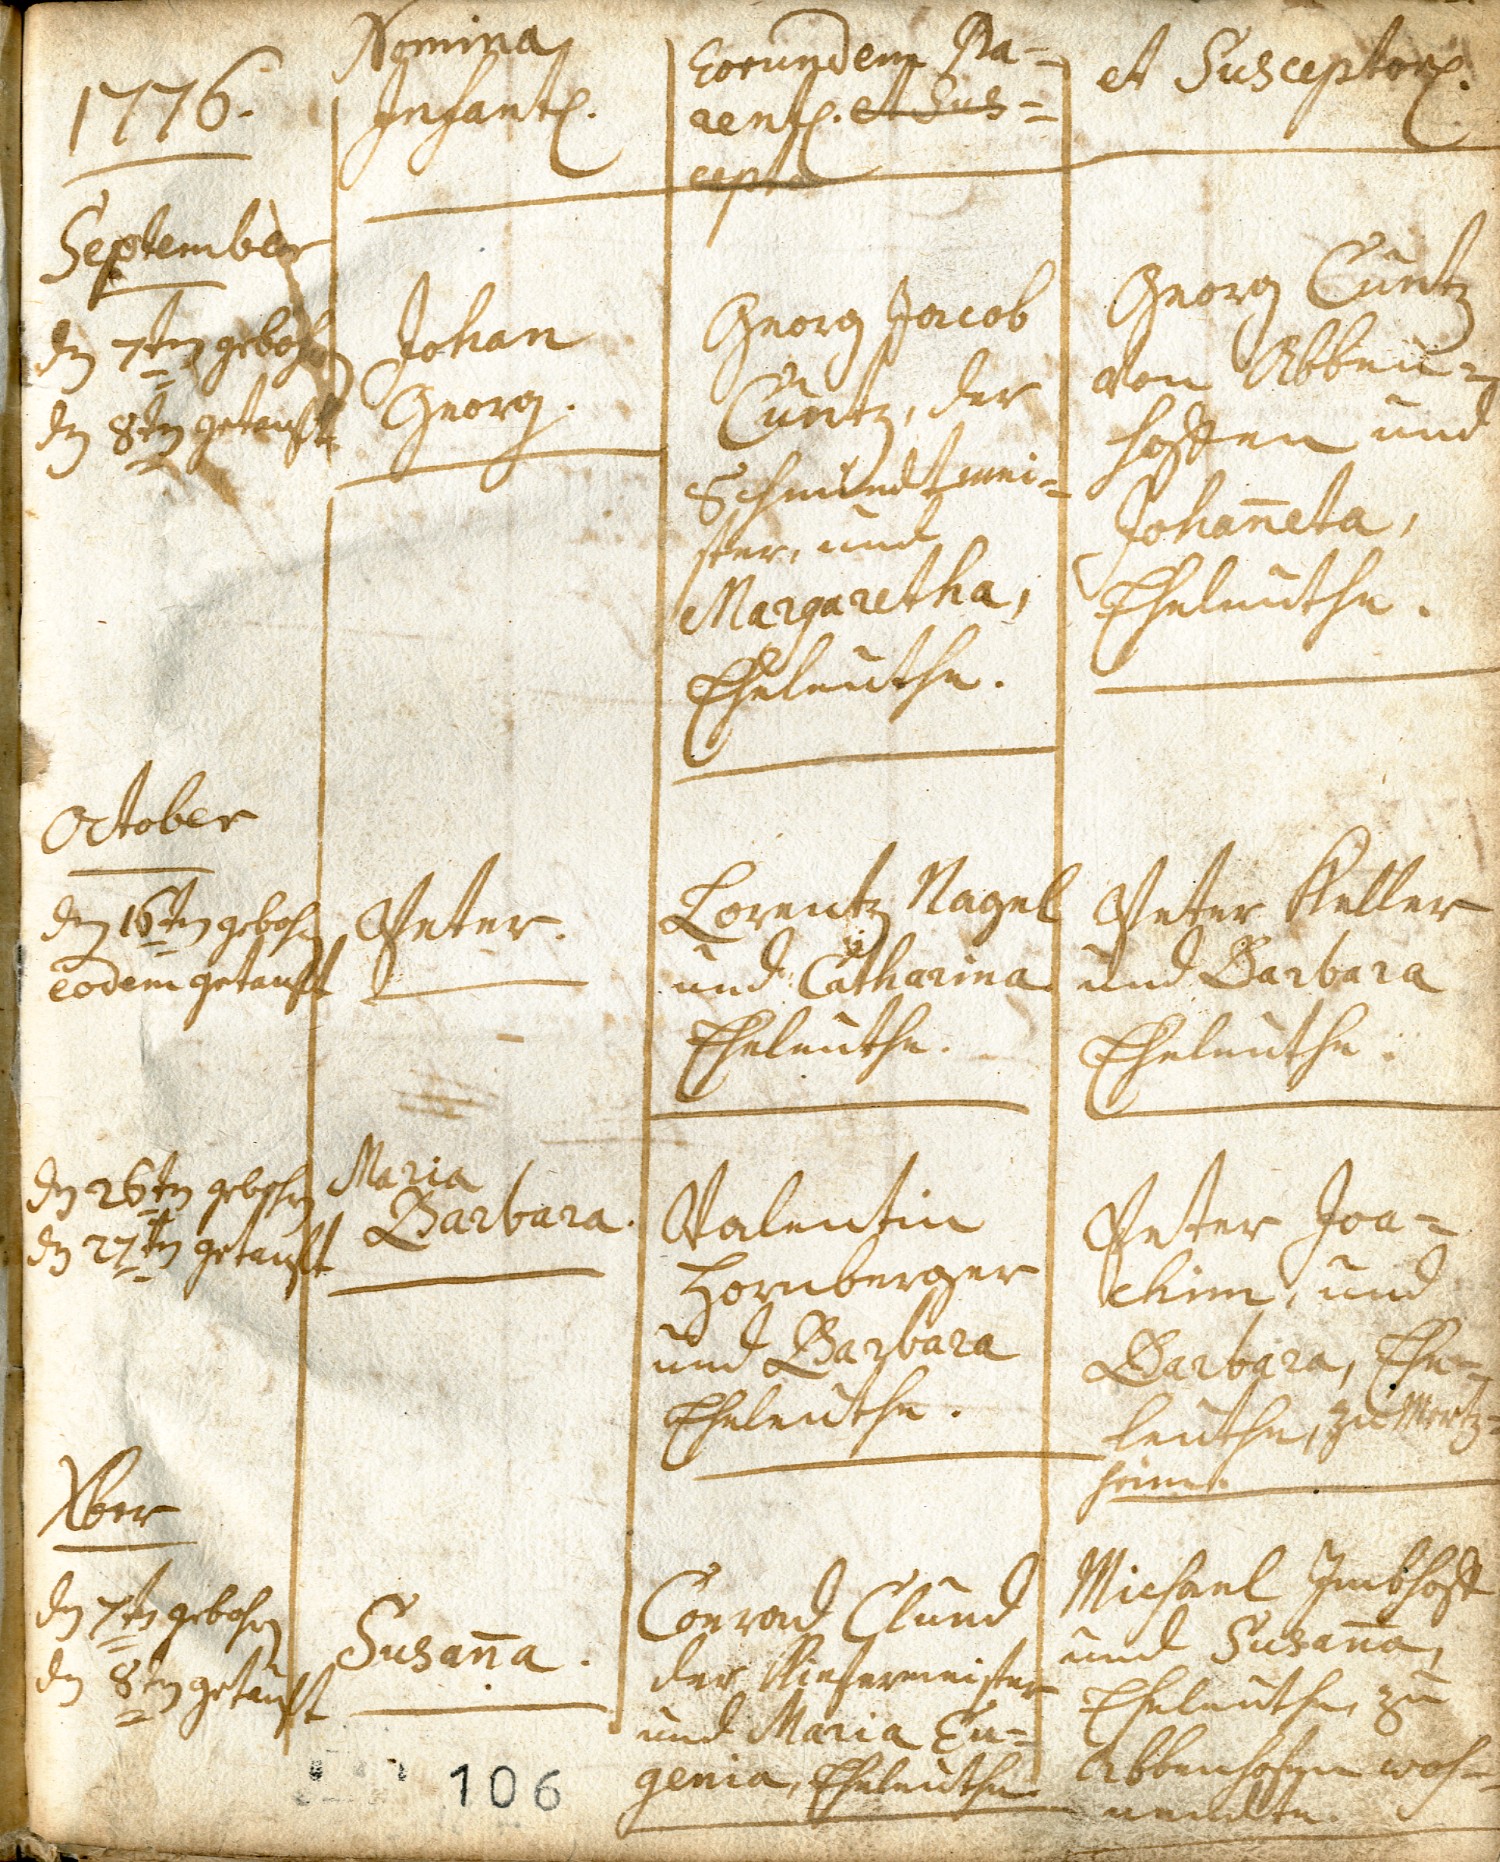 1776.
Nomina
Infant.
Eorundem Pa=
rent. et Sus=
cepto
et Susceptor.
September
den 7ten gebohren
den 8ten getaufft
Johan
Georg.
Georg Jacob
Cuntz, der
Schmiedtmei=
ster, und
Margaretha,
Eheleuthe.
Georg Cuntz
von Abben=
hoffen und
Johan̄eta,
Eheleuthe.
October
den 16ten gebohren
eodem getaufft
Peter.
Lorentz Nagel
und Catharina
Eheleuthe.
Peter Keller
und Barbara
Eheleuthe.
den 26ten gebohren
den 27ten getaufft
Maria
Barbara.
Valentin
Hornberger
und Barbara
Eheleuthe.
Peter Joa=
chim, und
Barbara, Ehe=
leuthe, zu Mertz=
heim.
Xber
den 7ten gebohren
den 8ten getaufft
Susan̄a.
Conrad Clund
der Kiefermeister
und Maria Eu=
genia, Eheleuthe.
Michael Imbhoff
und Susan̄a,
Eheleuthe, zu
Abbenhofen woh=
nendte.
106